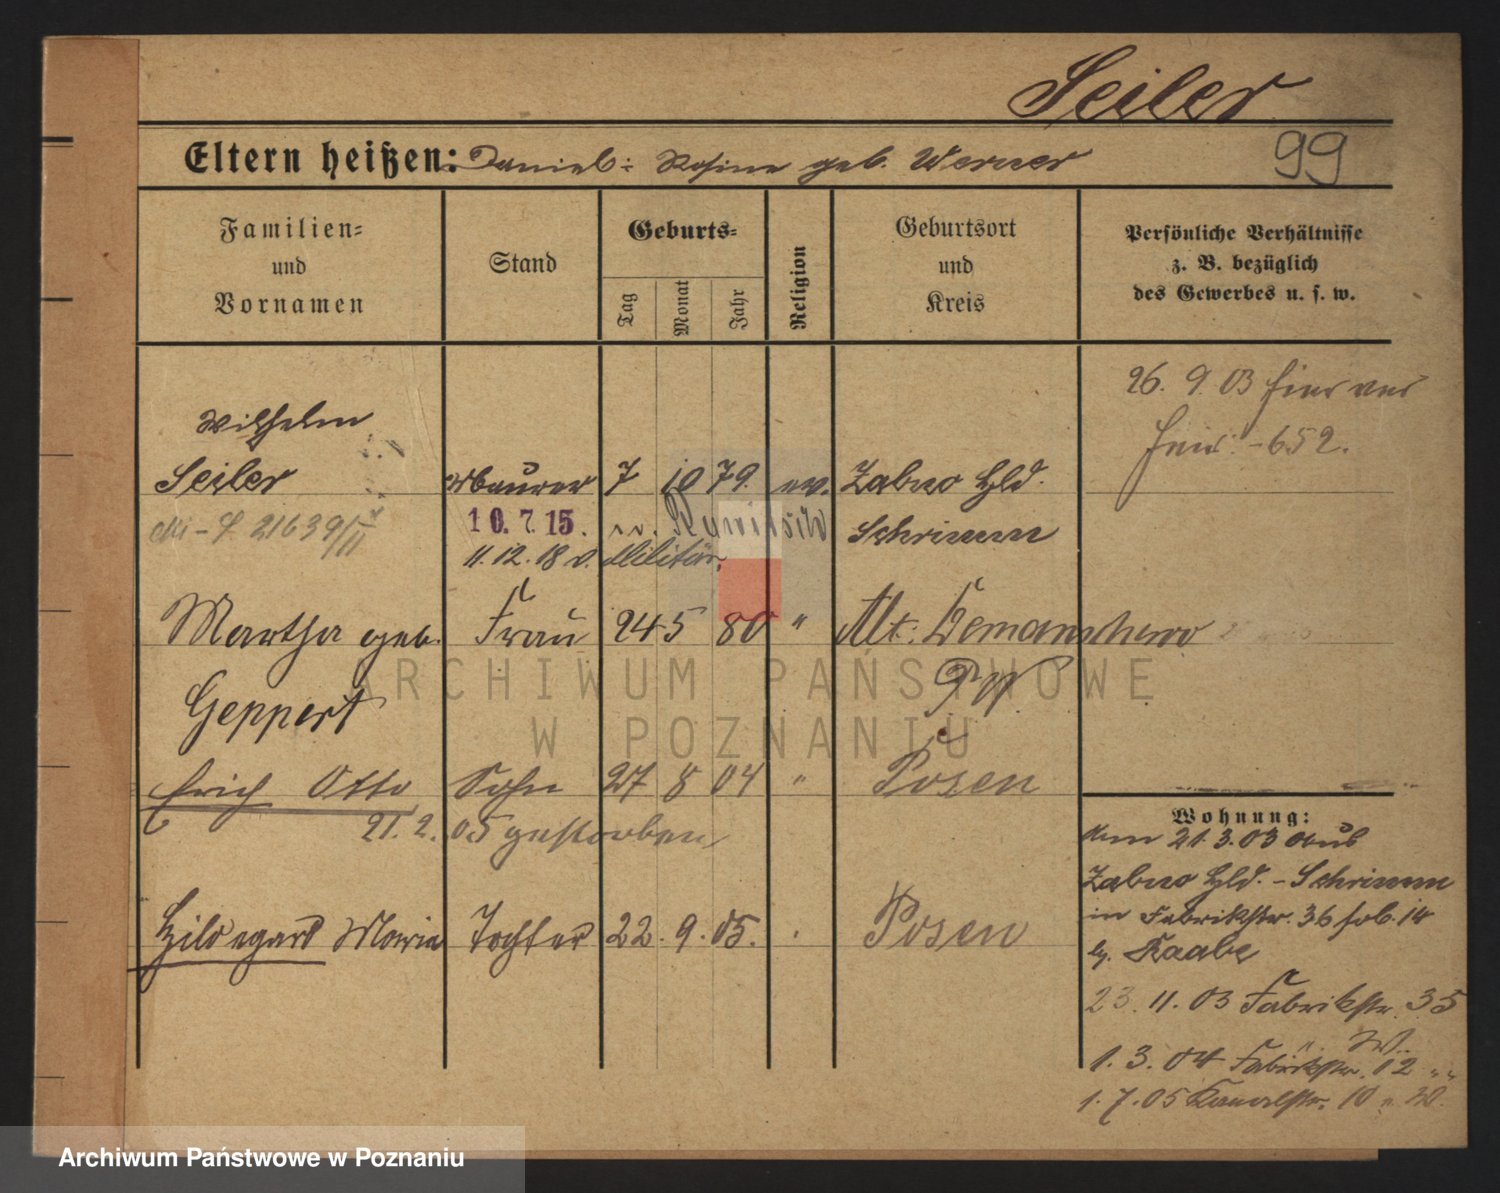 Seiler
99
Eltern heißen: Daniel : Rosine geb. Werner
Familien-
und
Vornamen
Stand
Geburts-
Tag
Monat
Jahr
Religion
Geburtsort
und
Kreis
Persönliche Verhältnisse
z. B. bezüglich
des Gewerbes u. s. w.
26. 9. 03 hier
652.
Wilhelm
Seiler Maurer 7 10 79. ev. Zabno Hld.
21639/II 10.7.15. Schrimm
11.12.18 v. Militär.
Martha geb. Frau 24 5 80 " Alt: Demanchewo
Geppert PW
Erich Otto Sohn 27 8 04 " Posen
21. 2. 05 gestorben
Hildegard Maria Tochter 22. 9. 05. . Posen
Wohnung:
21.3.03 aus
Zabno Hld. - Schrimm
in Fabrikstr. 36 14
b. Raabe
23. 11. 03 Fabrikstr. 35
W.
1. 3. 04 Fabrikstr. 12 " "
1. 7. 05 Kanalstr. 10 " W.
ARCHIWUM PAŃSTWOWE
W POZNANIU
Archiwum Państwowe w Poznaniu